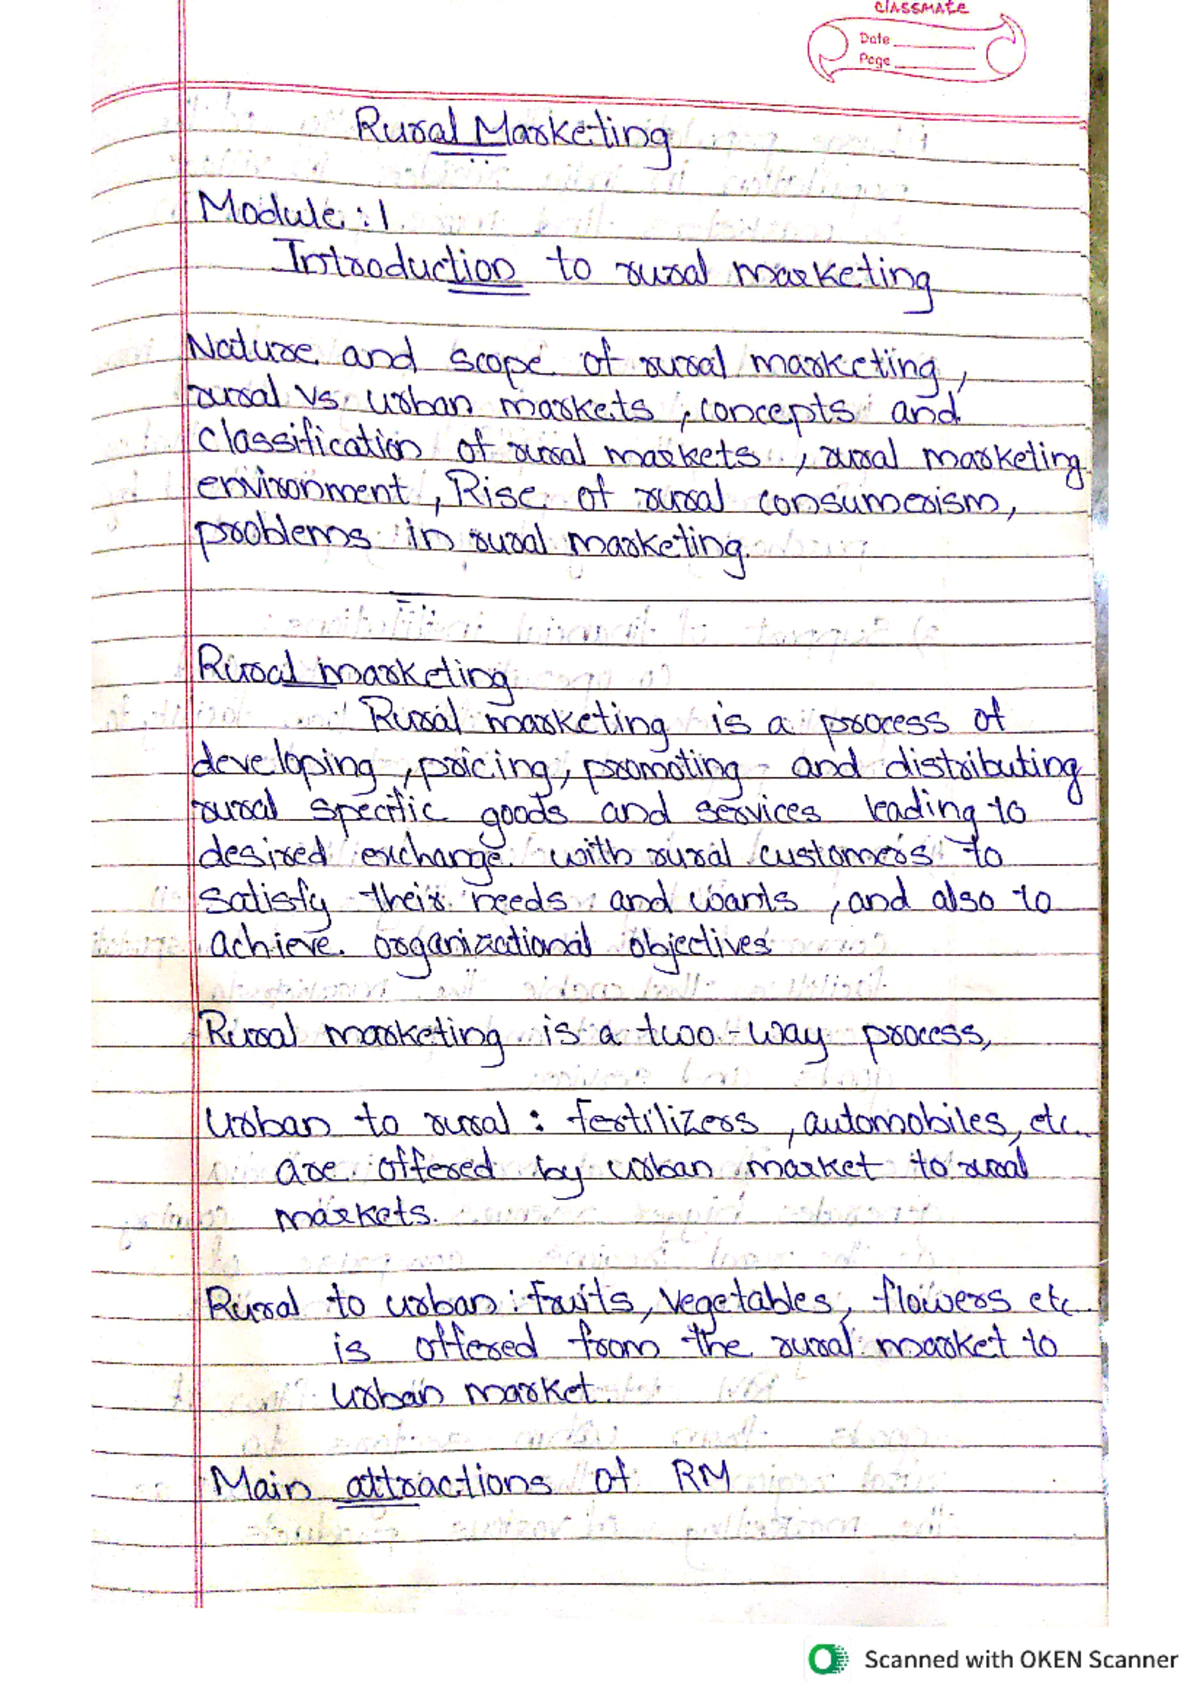 classmate
Date
Page
Rural Marketing
Module : 1
Introduction to rural marketing
Nature and scope of rural marketing,
rural vs. urban markets, concepts and
classification of rural markets, rural marketing
environment, Rise of rural consumerism,
problems in rural marketing.
Rural marketing
Rural marketing is a process of
developing, pricing, promoting and distributing
rural specific goods and services leading to
desired exchange with rural customers to
satisfy their needs and wants, and also to
achieve organizational objectives
Rural marketing is a two-way process,
Urban to rural : fertilizers, automobiles, etc.
are offered by urban market to rural
markets.
Rural to urban : fruits, vegetables, flowers etc
is offered from the rural market to
urban market.
Main attractions of RM
Scanned with OKEN Scanner